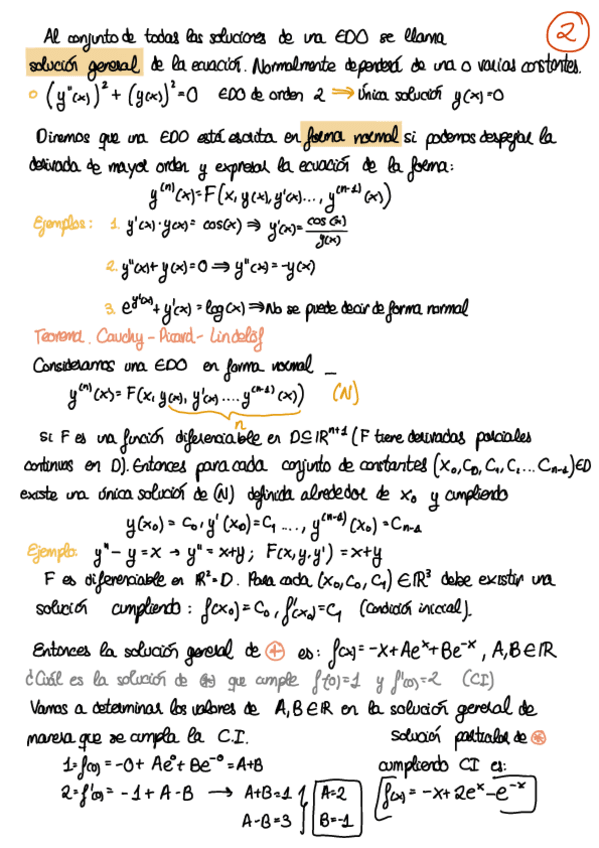 ②
Al conjunto de todas las soluciones de una EDO se llama
solución general de la ecuación. Normalmente dependerá de una o varias constantes.
o (y''(x))² + (y(x))² = 0 EDO de orden 2 ⇒ única solución y(x)=0
Diremos que una EDO está escrita en forma normal si podemos despejar la
derivada de mayor orden y expresar la ecuación de la forma:
y⁽ⁿ⁾(x)=F(x, y(x), y'(x)..., y⁽ⁿ⁻¹⁾(x))
Ejemplos: 1. y'(x)·y(x)= cos(x) ⇒ y'(x)= cos(x)/y(x)
2. y''(x)+y(x)=0 ⇒ y''(x)=-y(x)
3. e^y'(x) + y'(x) = log(x) ⇒ No se puede decir de forma normal
Teorema. Cauchy-Picard-Lindelöf
Consideramos una EDO en forma normal _
y⁽ⁿ⁾(x)= F(x, y(x), y'(x)....y⁽ⁿ⁻¹⁾(x)) (N)
n
Si F es una función diferenciable en D⊆ℝⁿ⁺¹ (F tiene derivadas parciales
continuas en D). Entonces para cada conjunto de constantes (x₀, C₀, C₁, C₂... Cₙ₋₁)∈D
existe una única solución de (N) definida alrededor de x₀ y cumpliendo
y(x₀) = C₀, y'(x₀)=C₁ ..., y⁽ⁿ⁻¹⁾(x₀) = Cₙ₋₁
Ejemplo: y''-y=x → y''=x+y; F(x,y,y')=x+y
F es diferenciable en ℝ²=D. Para cada (x₀,C₀,C₁)∈ℝ³ debe existir una
solución cumpliendo: f(x₀)=C₀, f'(x₀)=C₁ (Condición inicial).
Entonces la solución general de ⊕ es: f(x)=-x+Aeˣ+Be⁻ˣ, A,B∈ℝ
¿Cuál es la solución de (*) que cumple f(0)=1 y f'(0)=2 (CI)
Vamos a determinar los valores de A,B∈ℝ en la solución general de
manera que se cumpla la C.I. solución particular de ⊛
1=f(0)=-0+Ae⁰+Be⁻⁰=A+B cumpliendo CI es:
2=f'(0)= -1+A-B → A+B=1 A=2 f(x)= -x+2eˣ-e⁻ˣ
A-B=3 B=-1